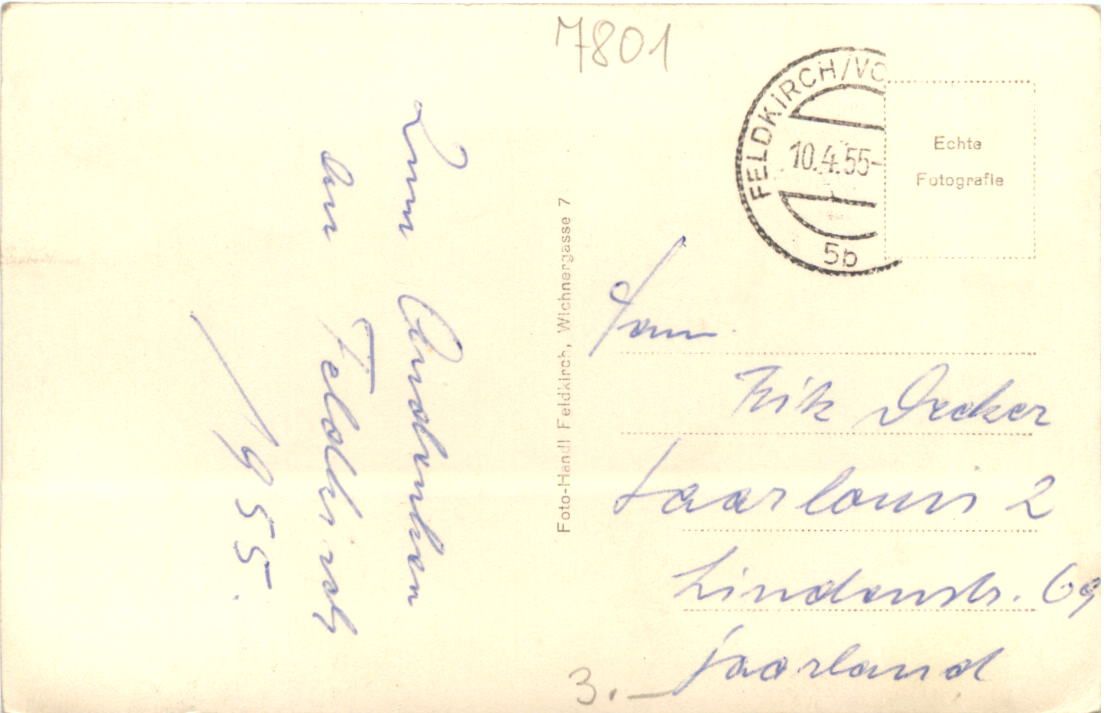 7801
FELDKIRCH/VO
10.4.55-
5b
Echte
Fotografie
Zum Andenken
an Feldkirch
1955.
Foto-Handl Feldkirch, Wichnergasse 7
Fam.
Fritz Decker
Saarlouis 2
Lindenstr. 69
Saarland
3.-